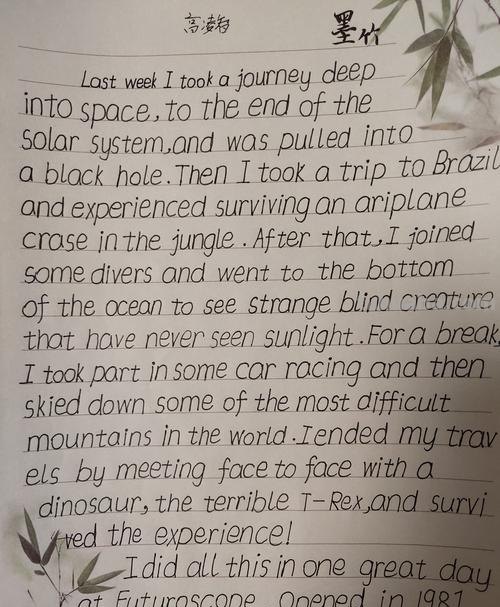 高凌
墨竹
Last week I took a journey deep
into space, to the end of the
solar system,and was pulled into
a black hole. Then I took a trip to Brazil
and experienced surviving an ariplane
crase in the jungle. After that, I joined
some divers and went to the bottom
of the ocean to see strange blind creature
that have never seen sunlight. For a break,
I took part in some car racing and then
skied down some of the most difficult
mountains in the world. I ended my trav
els by meeting face to face with a
dinosaur, the terrible T-Rex,and survi
ved the experience!
I did all this in one great day
at Futuroscope. Opened in 1981